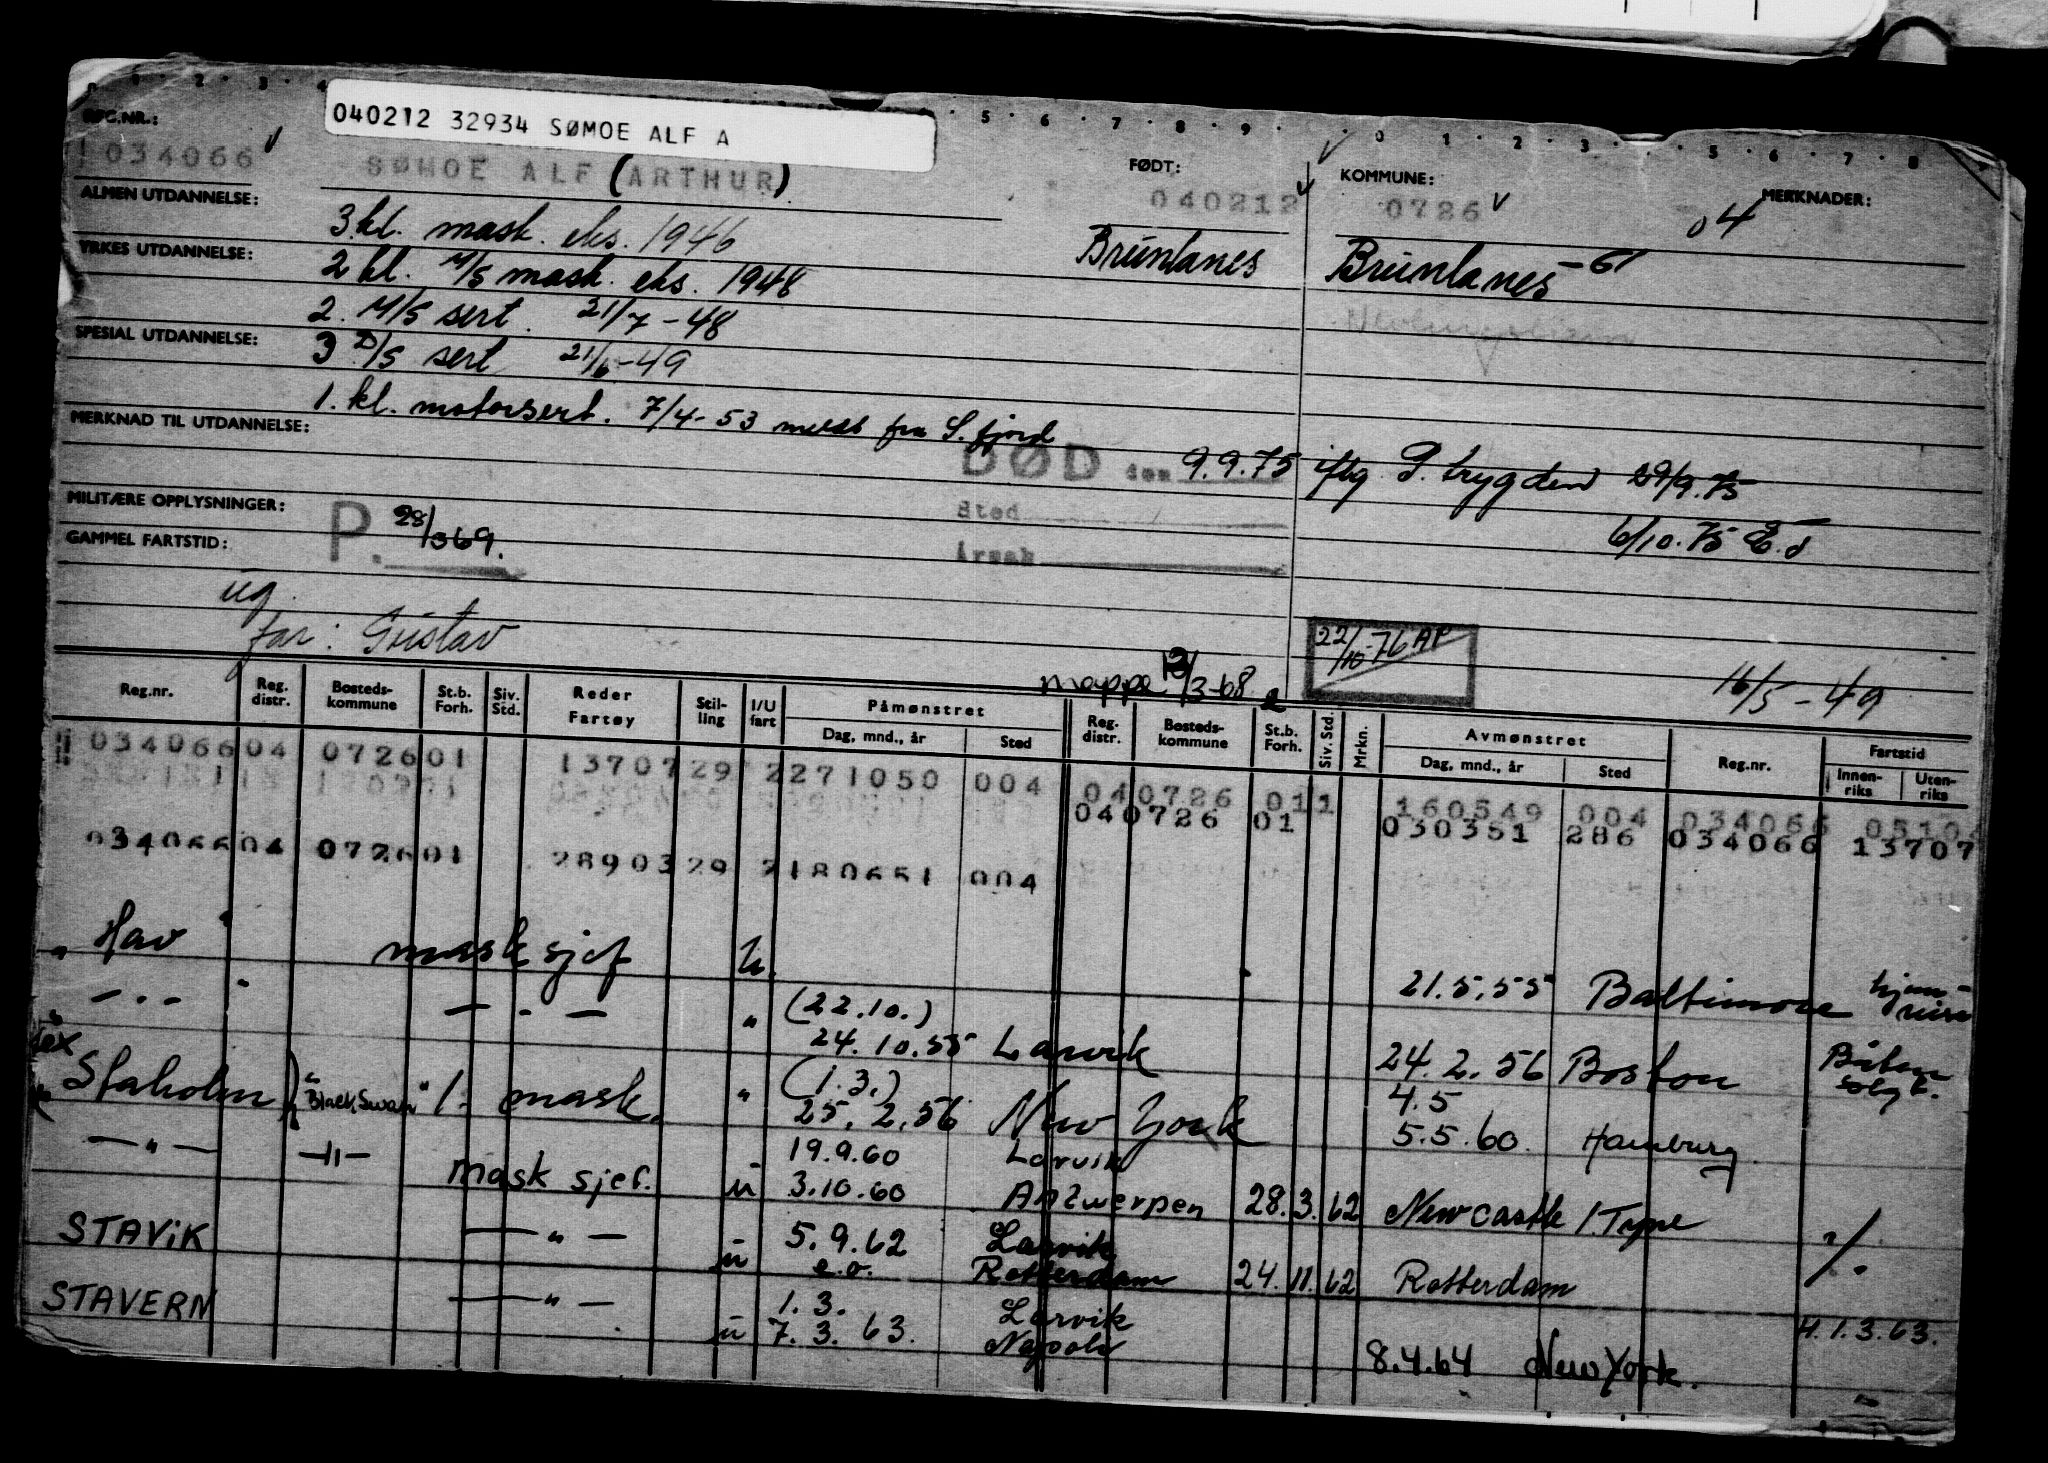 040212 32934 SØMOE ALF A
REG.NR.:
034066
SØMOE ALF (ARTHUR)
FØDT:
040212
KOMMUNE:
0726
MERKNADER:
04
ALMEN UTDANNELSE:
3 kl. mask. eks. 1946
Brunlanes
Brunlanes -61
YRKES UTDANNELSE:
2 kl. M/S mask. eks. 1948
2. M/S sert. 21/7-48
SPESIAL UTDANNELSE:
3 D/S sert 21/6-49
1. kl. motorsert. 7/4-53 fra S.fjord
MERKNAD TIL UTDANNELSE:
DØD den 9.9.75 iflg P. trygden 29/9.75
Sted
6/10.75
MILITÆRE OPPLYSNINGER:
P. 28/369.
Årsak
GAMMEL FARTSTID:
ug
far: Gustav
22/10-76 AP
mappe 12/3-68
16/5-49
Reg.nr. Reg. distr. Bosteds-kommune St.b. Forh. Siv. Std. Reder Fartøy Stil-ling I/U fart Påmønstret Dag, mnd., år Sted Reg. distr. Bosteds-kommune St.b. Forh. Siv. Std. Mrkn. Avmønstret Dag, mnd., år Sted Reg.nr. Fartstid Innen-riks Uten-riks
034066 04 0726 01 13707 29 2 271050 004
04 0726 01 1 160549 004 034066
04 0726 01 030351 286 034066 13707
034066 04 0726 01 28903 29 2 180651 004
" Hav " mask sjef u. 21.5.55 Baltimore hjem-reise
" — . — " — . — " (22.10.) 24.10.55 Larvik 24.2.56 Boston
ex
Staholm "Black Swan" 1. mask. " (1.3.) 25.2.56 New York 4.5 5.5.60 Hamburg
— " — — " — mask sjef. u 19.9.60 Larvik
3.10.60 Antwerpen 28.3.62 Newcastle /Tyne
STAVIK — " — u 5.9.62 Larvik
e.o. Rotterdam 24.11.62 Rotterdam
STAVERN — " — u 1.3. Larvik H.1.3.63.
7.3.63. Napoli 8.4.64 New York.